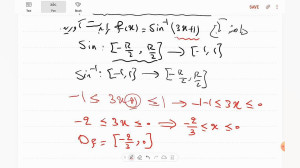 f(x) = Sin⁻¹(3x+1)
Sin: [-π/2, π/2] → [-1, 1]
Sin⁻¹: [-1, 1] → [-π/2, π/2]
-1 ≤ 3x+1 ≤ 1 → -1-1 ≤ 3x ≤ 0
-2 ≤ 3x ≤ 0 ⇒ -2/3 ≤ x ≤ 0
D_f = [-2/3, 0]